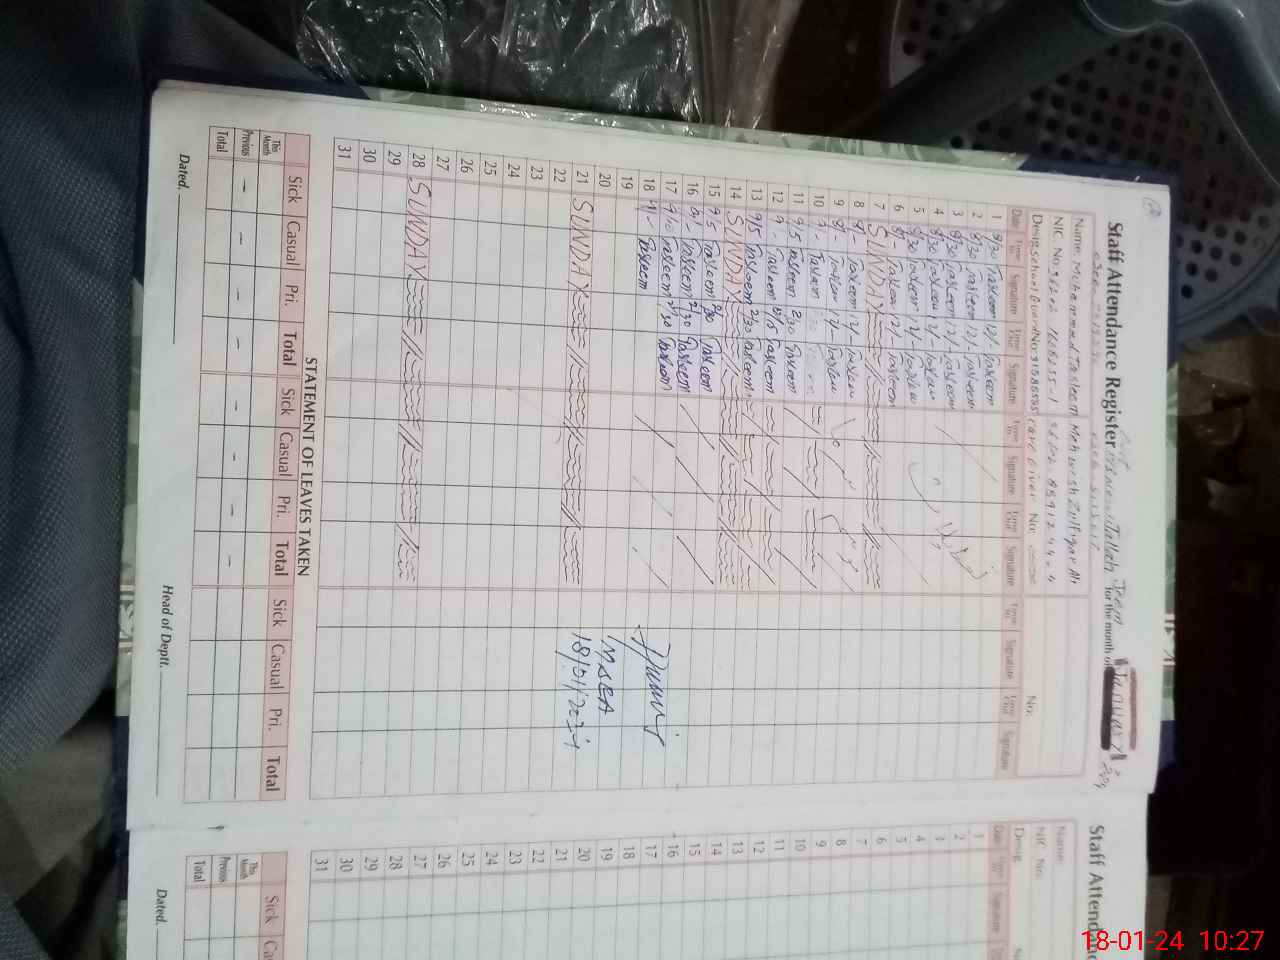 Staff Attendance Register
for the month of January
Name: Muhammad Tasleem Mehwish Zulfiqar Ali
NIC. No.
Desig. School Guard No: Care Giver No: No:
Date Time In Signature Time Out Signature Time In Signature Time Out Signature Time In Signature Time Out Signature
1 8/30 Tasleem 12/- Tasleem
2 8/30 Tasleem 12/- Tasleem
3 8/30 Tasleem 12/- Tasleem
4 8/30 Tasleem 12/- Tasleem
5 8/30 Tasleem 12/- Tasleem
6 8/- Tasleem 12/- Tasleem
7 SUNDAY
8 8/- Tasleem 12/- Tasleem
9 8/- Tasleem 12/- Tasleem
10 9/- Tasleem
11 9/5 Tasleem 2/30 Tasleem
12 9/- Tasleem 2/15 Tasleem
13 9/5 Tasleem 2/30 Tasleem
14 SUNDAY
15 9/5 Tasleem 2/30 Tasleem
16 9/- Tasleem 2/30 Tasleem
17 9/- Tasleem 2/30 Tasleem
18 9/- Tasleem
19
20 MSEA
21 SUNDAY 18/01/2024
22
23
24
25
26
27
28 SUNDAY
29
30
31
STATEMENT OF LEAVES TAKEN
Sick Casual Pri. Total Sick Casual Pri. Total Sick Casual Pri. Total
This Month
Previous - - - - - - - -
Total
Dated. Head of Deptt.
Staff Attenda
Name:
NIC. No:
Desig.
Date
1
2
3
4
5
6
7
8
9
10
11
12
13
14
15
16
17
18
19
20
21
22
23
24
25
26
27
28
29
30
31
Sick Ca
This Month
Previous
Total
Dated.
18-01-24 10:27